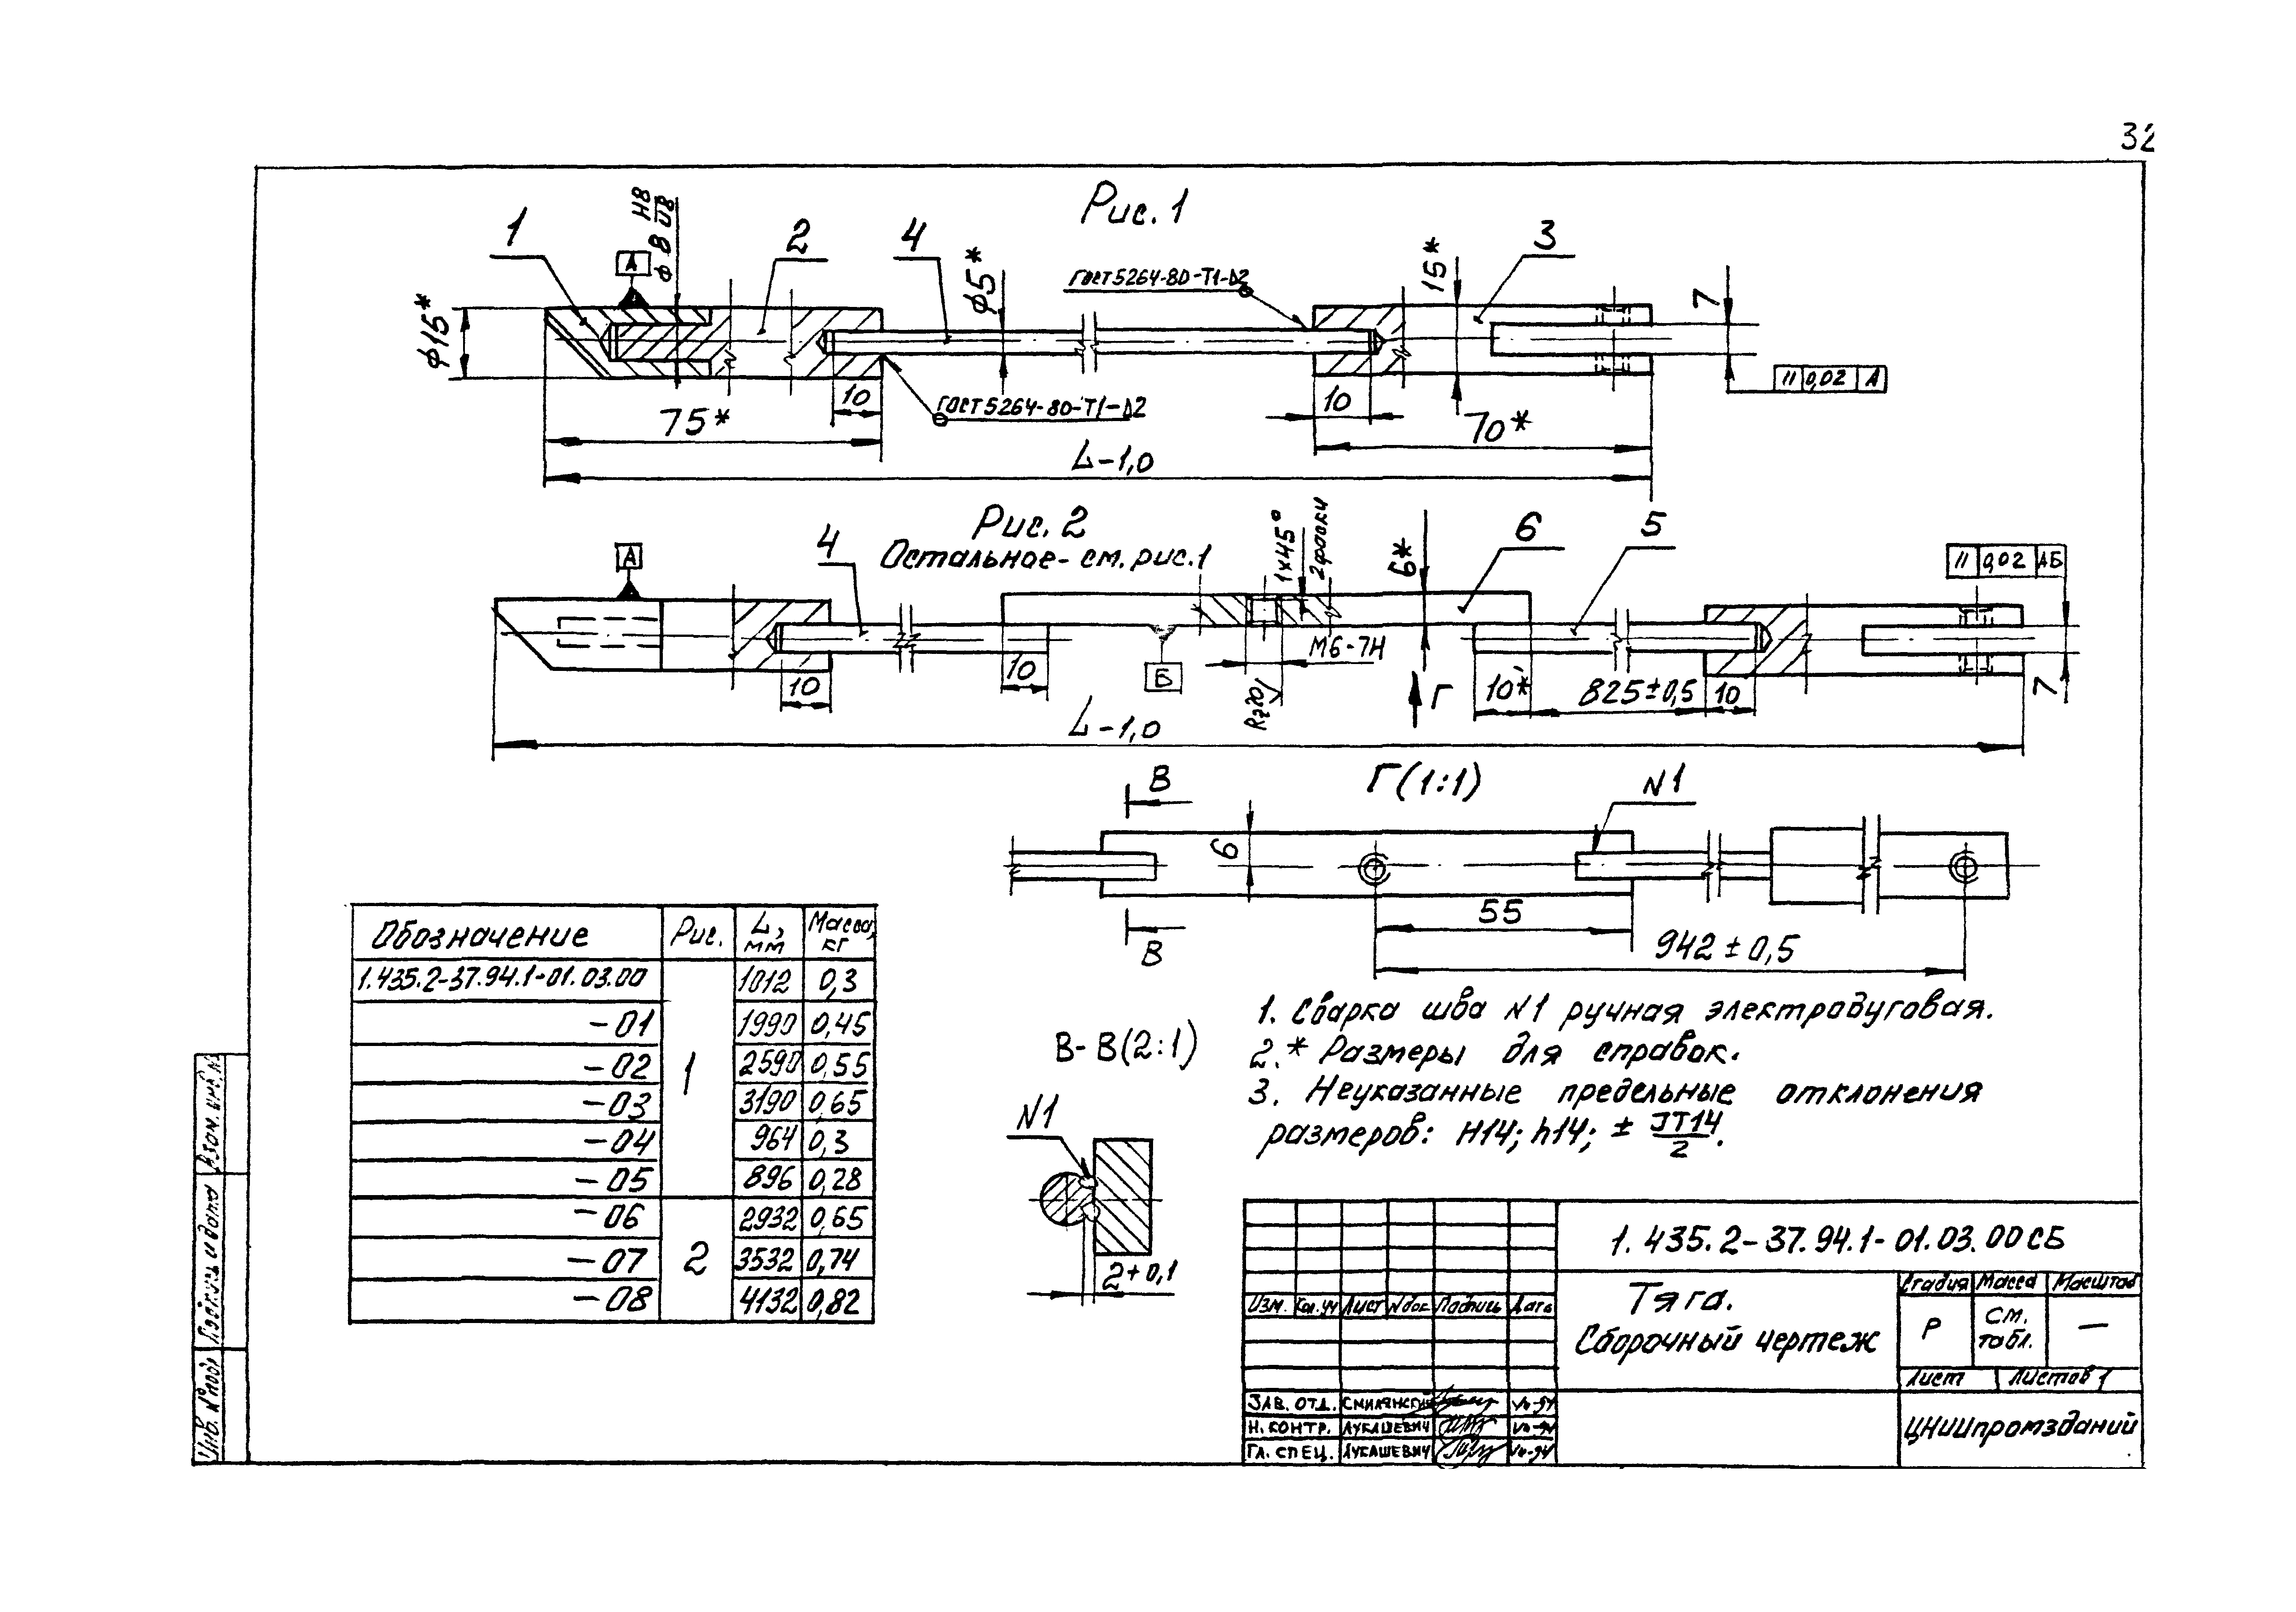 32
Рис. 1
1
А
ф 8 H8/U8
2
4
ф5*
ГОСТ 5264-80-Т1-Δ2
15*
3
7
ф15*
// 0,02 А
10
ГОСТ 5264-80-Т1-Δ2
10
75*
70*
L-1,0
Рис. 2
Остальное - см. рис. 1
А
4
1х45°
2 фаски
6*
6
5
// 0,02 АБ
М6-7Н
Б
Rz20
Г
10
10
10*
825±0,5
10
7
L-1,0
Г(1:1)
В
N1
6
55
В
942±0,5
Обозначение Рис. L, мм Масса, кг
1.435.2-37.94.1-01.03.00 1 1012 0,3
-01 1990 0,45
-02 2590 0,55
-03 3190 0,65
-04 964 0,3
-05 896 0,28
-06 2 2932 0,65
-07 3532 0,74
-08 4132 0,82
В-В(2:1)
N1
2+0,1
1. Сварка шва N1 ручная электродуговая.
2. * Размеры для справок.
3. Неуказанные предельные отклонения
размеров: H14; h14; ± JT14/2.
1.435.2-37.94.1-01.03.00 СБ
Тяга.
Сборочный чертеж
Стадия Масса Масштаб
Р см. табл. —
Лист Листов 1
ЦНИИпромзданий
Изм. Кол.уч Лист Nдок Подпись Дата
ЗАВ. ОТД. СМИЛЯНСКИЙ
Н. КОНТР. ЛУКАШЕВИЧ
ГЛ. СПЕЦ. ЛУКАШЕВИЧ
Взам. инв. N
Подпись и дата
Инв. N подл